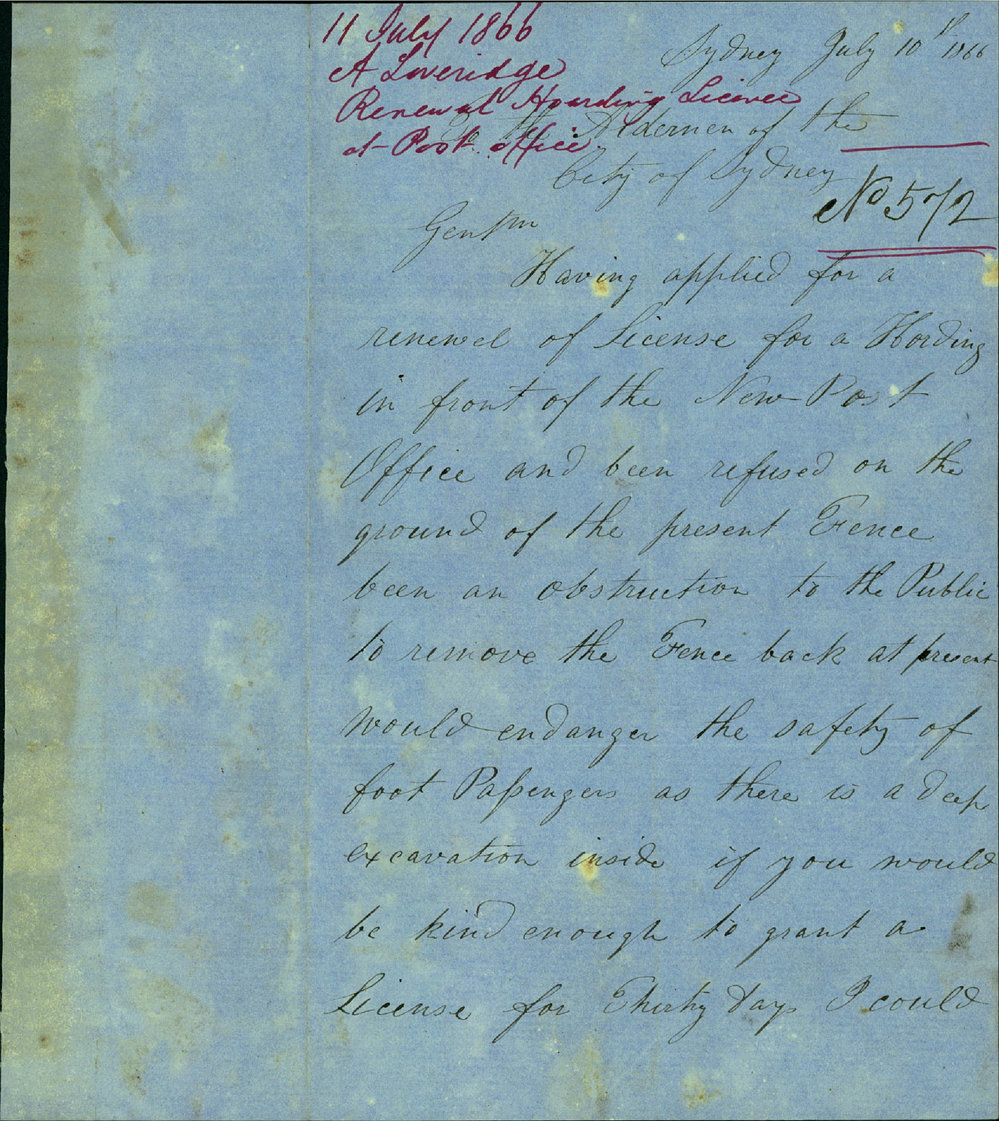 11 July 1866
A Loveridge
Renewal Hoarding Licence
at Post Office
Sydney July 10th 1866
To the Aldermen of the
City of Sydney
No 572
Gentm
Having applied for a
renewel of License for a Hording
in front of the New Post
Office and been refused on the
ground of the present Fence
been an obstruction to the Public
to remove the Fence back at present
would endanger the safety of
foot Paſsengers as there is a deep
excavation inside if you would
be kind enough to grant a
License for Thirty days I could